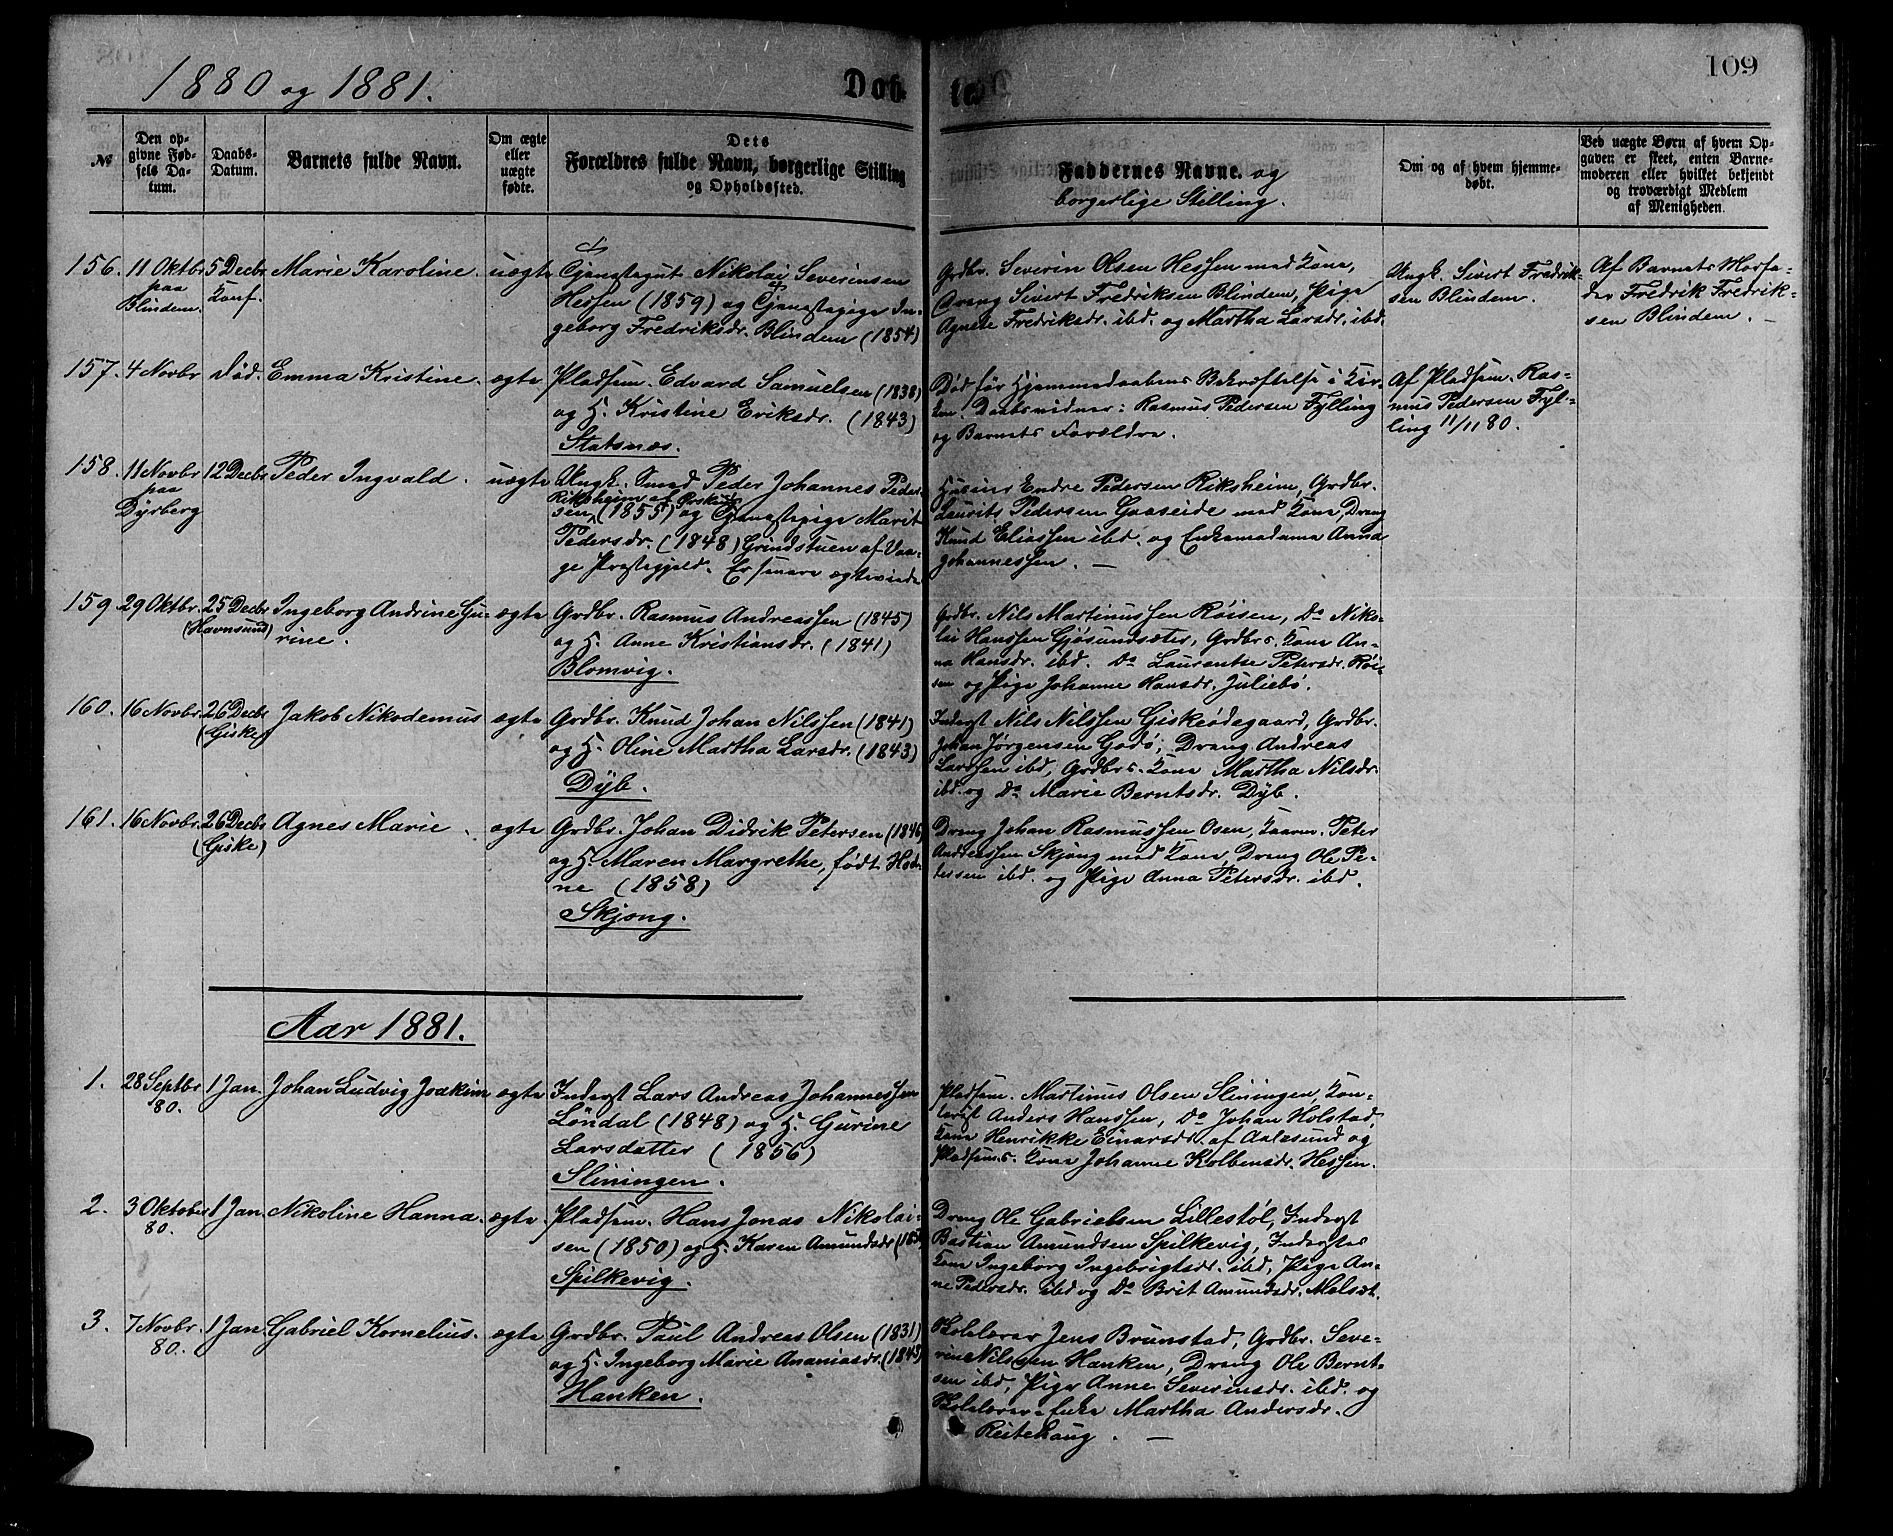 1880 og 1881.
Døb
te.
109
№
Den opgivne Fødsels Datum.
Daabs-Datum.
Barnets fulde Navn.
Om ægte eller uægte fødte.
Dets Forældres fulde Navn, borgerlige Stilling og Opholdssted.
Faddernes Navne. og
borgerlige Stilling.
Om og af hvem hjemmedøbt.
Ved uægte Børn af hvem Opgaven er skeet, enten Barnemoderen eller hvilket bekjendt og troværdigt Medlem af Menigheden.
156. 11 Oktbr paa Blindem. 5 Decbr Konf. Marie Karoline. uægte
Tjenestegut Nikolai Severinsen
Hessen (1859) og Tjenestepige In-
geborg Fredriksdr. Blindem (1854)
Grdbr. Severin Olsen Hessen med Kone,
Dreng Sivert Fredriksen Blindem, Pige
Agnete Fredriksdr. ibd. og Martha Larsdr. ibd.
Ungk. Sivert Fredrik-
sen Blindem.
Af Barnets Morfa-
der Fredrik Fredrik-
sen Blindem. —
157. 4 Novbr død. Emma Kristine. ægte
Pladsm. Edvard Samuelsen (1838)
og H. Kristine Eriksdr. (1843)
Statsnes.
Død før Hjemmedaabens Bekræftelse i Kir-
ken. Daabsvidner: Rasmus Pedersen Fylling
og Barnets Forældre.
Af Pladsm. Ras-
mus Pedersen Fyl-
ling 11/11 80.
158. 11 Novbr paa Dyrberg 12 Decbr Peder Ingvald. uægte
Ungk. Smed Peder Johannes Peder-
Riksheim af Ørskoug
sen (1855) og Tjenestepige Marit
Pedersdr. (1848) Grindstuen af Vaa-
ge Præstegjeld. Er senere ægteviede
Husm. Endre Pedersen Riksheim, Grdbr.
Laurits Pedersen Gaaseide med Kone, Dreng
Knud Eliassen ibd. og Enkemadame Anna
Johannessen. —
159. 29 Oktbr. 25 Decbr (Havnsund) Ingeborg Andrine Gu-
rine. ægte
Grdbr. Rasmus Andreassen (1845)
og H. Anne Kristiansdr. (1841)
Blomvig.
Grdbr. Nils Martinussen Røisen, Do Niko-
lai Hanssen Gjøsundsæter, Grdbrs. Kone An-
na Hansdr. ibd. Do Laurentse Petersdr. Røi-
sen og Pige Johanne Hansdr. Juliebø.
160. 16 Novbr. 26 Decbr (Giske) Jakob Nikodemus ægte
Grdbr. Knud Johan Nilssen (1841)
og H. Oline Martha Larsdr. (1843)
Dyb.
Inderst Nils Nilssen Giskeødegaard, Grdbr.
Johan Jørgensen Godø; Dreng Andreas
Larssen ibd, Grdbrs. Kone Martha Nilsdr.
ibd. og Do Marie Berntsdr. Dyb.
161. 16 Novbr. 26 Decbr (Giske) Agnes Marie. ægte
Grdbr. Johan Didrik Petersen (1846)
og H. Maren Margrethe, født
ne (1858)
Skjong.
Dreng Johan Rasmussen Osen, Kaarm. Peter
Andreassen Skjong med Kone, Dreng Ole Pe-
tersen ibd. og Pige Anna Petersdr. ibd.
Aar 1881.
1. 28 Septbr 80. 1 Jan. Johan Ludvig Joakim ægte
Inderst Lars Andreas Johannessen
Løndal (1848) og H. Gurine
Larsdatter (1856)
Sliningen.
Pladsm. Martinus Olsen Sliningen, Kon-
torist Anders Hanssen, Do Johan Holstad,
Kone Henrikke Einarsdr. af Aalesund og
Pladsms. Kone Johanne Kolbensdr. Hessen.
2. 3 Oktober 80. 1 Jan. Nikoline Hanna. ægte.
Pladsm. Hans Jonas Nikolai-
sen (1850) og H. Karen Amundsdr
Spilkevig.
Dreng Ole Gabrielsen Lillestøl, Inderst
Bastian Amundsen Spilkevig, Inderstes
Kone Ingeborg Ingebrigtsdr. ibd, Pige An-
ne Pedersdr. ibd og Do Brit Amundsdr. Melsæt.
3. 7 Novbr. 80. 1 Jan. Gabriel Kornelius. ægte
Grdbr. Paul Andreas Olsen (1831)
og H. Ingeborg Marie Ananiasdr. (1843)
Hanken.
Skolelærer Jens Brunstad, Grdbr. Seve-
rin Nilssen Hanken, Dreng Ole Bernt-
sen ibd, Pige Anne Severinsdr. ibd. og
Skolelærer-Enke Martha Andersdr.
Reitehaug. —